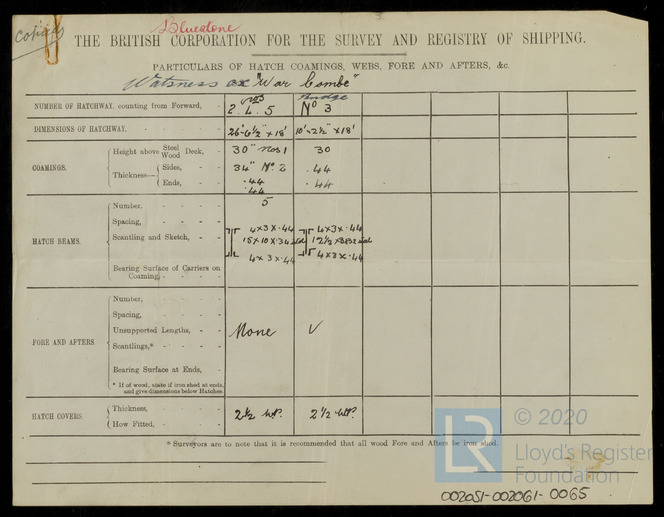 Copied
Bluestone
THE BRITISH CORPORATION FOR THE SURVEY AND REGISTRY OF SHIPPING.
PARTICULARS OF HATCH COAMINGS, WEBS, FORE AND AFTERS, &c.
Watsness ex "War Combe"
NUMBER OF HATCHWAY, counting from Forward, - 2. 4. 5 Bridge No 3
DIMENSIONS OF HATCHWAY, - - - - 26'-6½" × 18' 10'-2½" × 18'
COAMINGS.
Height above Steel Wood Deck, - 30" Nos 1 30
Thickness— Sides, - - 34" No. 2 .44
Ends, - - .44 .44
.44
HATCH BEAMS.
Number, - - - - 5
Spacing, - - - -
Scantling and Sketch, - - 4×3×.44 4×3×.44
4×3×.44 4×3×.44
Bearing Surface of Carriers on Coaming, - - - -
FORE AND AFTERS.
Number, - - - -
Spacing, - - - -
Unsupported Lengths, - - None ✓
Scantlings,* - - - -
Bearing Surface at Ends, -
* If of wood, state if iron shed at ends, and give dimensions below Hatches.
HATCH COVERS.
Thickness, - - - - 2½ W.P. 2½ W.P.
How Fitted, - - - -
* Surveyors are to note that it is recommended that all wood Fore and Afters be iron shed.
LR
© 2020
Lloyd's Register
Foundation
002051-002061-0065